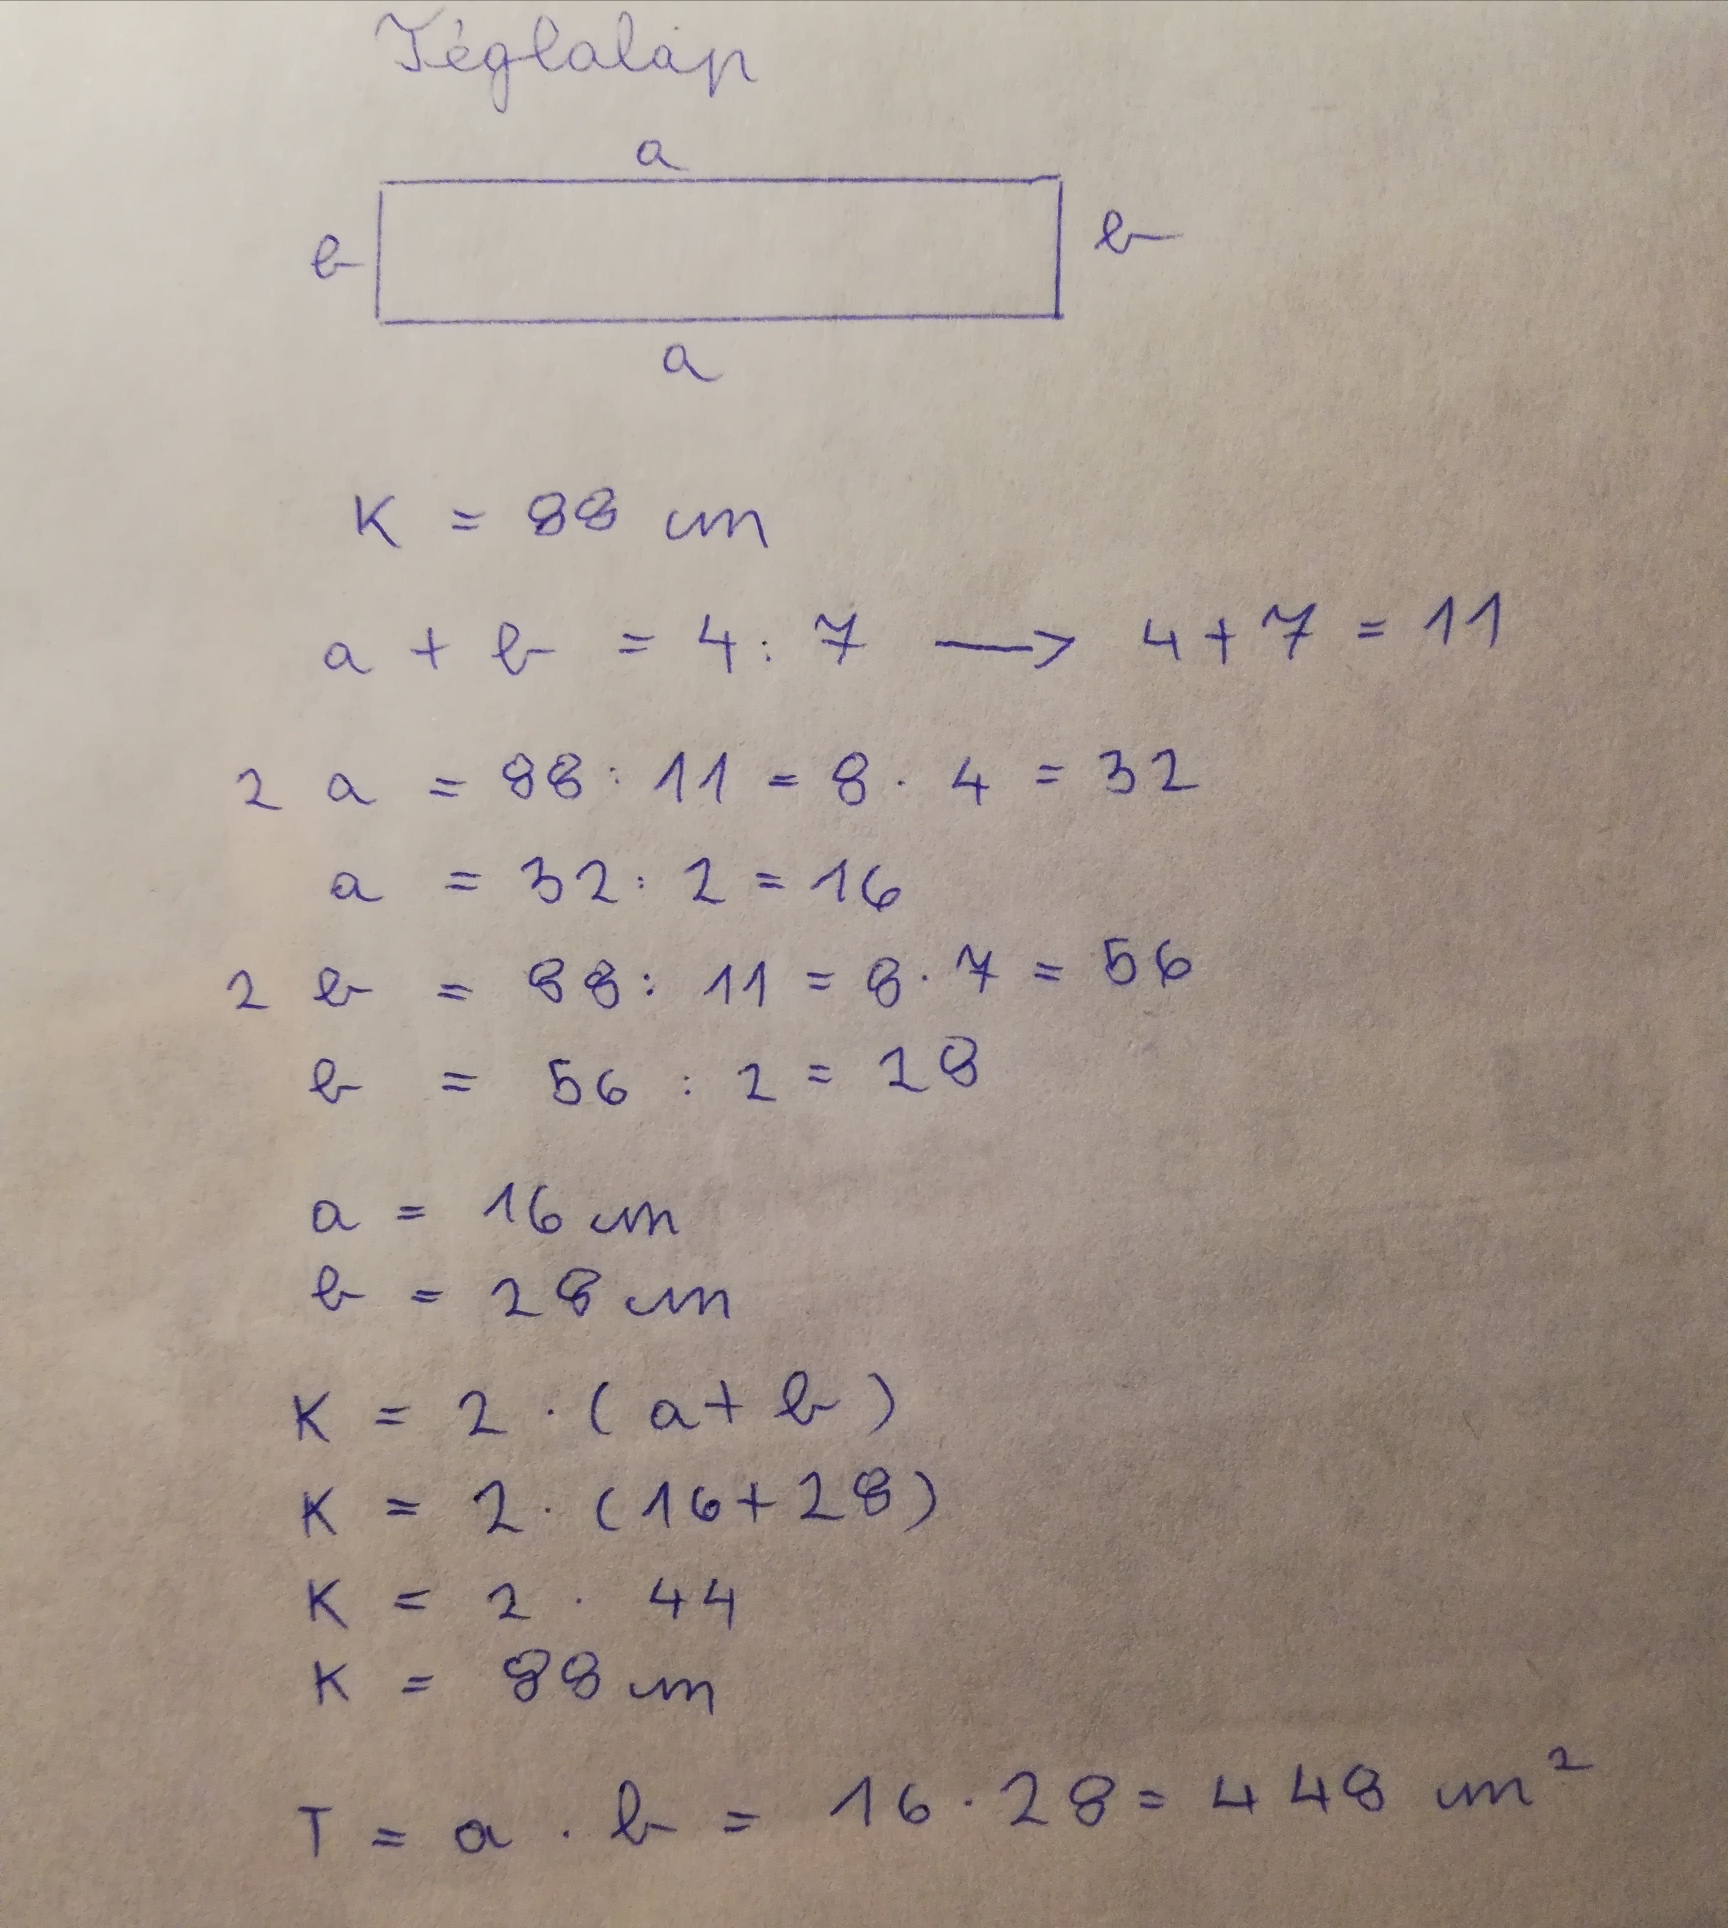 Téglalap
a
b b
a
K = 88 cm
a + b = 4 : 7 → 4 + 7 = 11
2 a = 88 : 11 = 8 · 4 = 32
a = 32 : 2 = 16
2 b = 88 : 11 = 8 · 7 = 56
b = 56 : 2 = 28
a = 16 cm
b = 28 cm
K = 2 · ( a + b )
K = 2 · ( 16 + 28 )
K = 2 · 44
K = 88 cm
T = a · b = 16 · 28 = 448 cm²